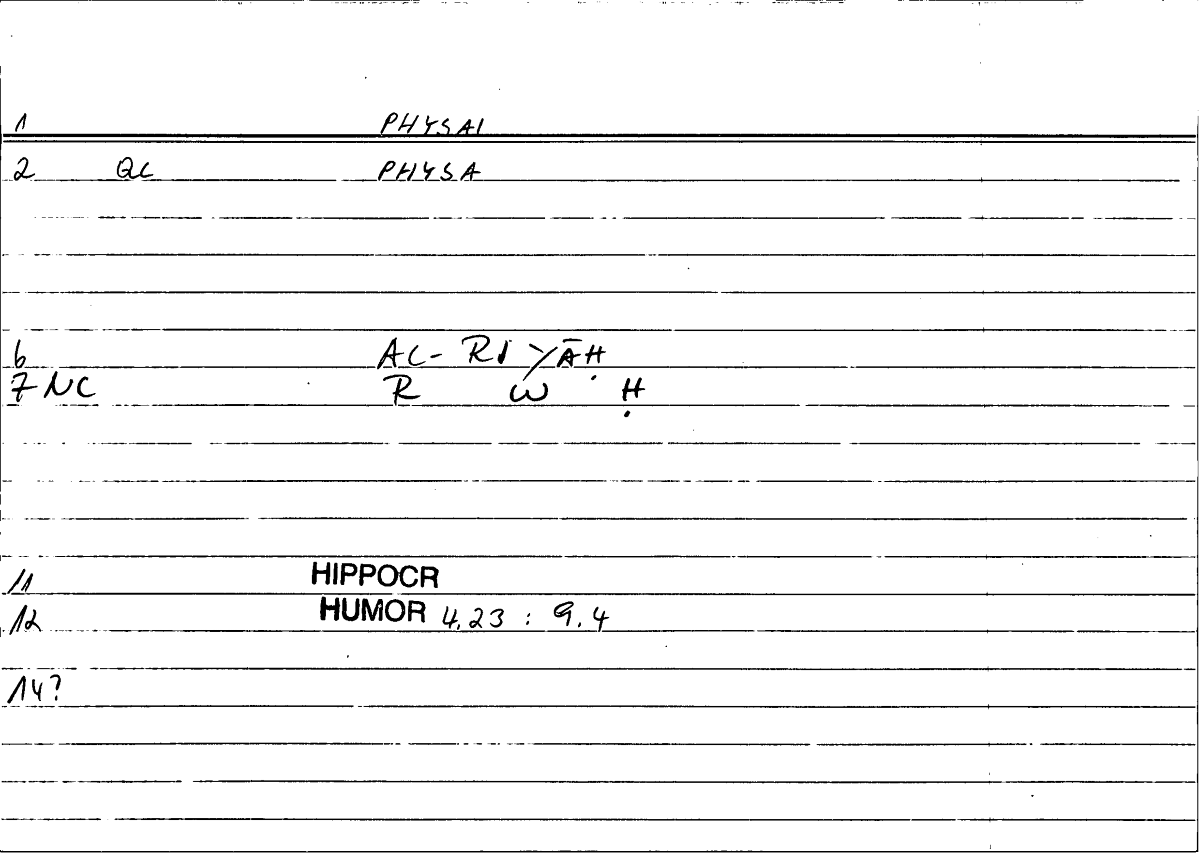 1 PHYSAI
2 QC PHYSA
6 AC-
7 NC R W Ḥ
11 HIPPOCR
12 HUMOR 4.23 : 9.4
14?